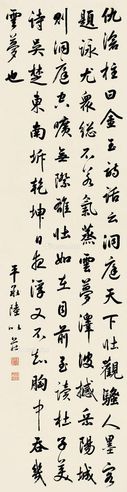 仇滄柱曰金玉詩話云洞庭天下壯觀騷人墨客
題詠尤衆總不若氣蒸雲夢澤波撼岳陽城
則洞庭空曠無際雄壯如在目前至讀杜子美
詩吴楚東南坼乾坤日夜浮又不知胸中吞幾
雲夢也
平叔陸以莊